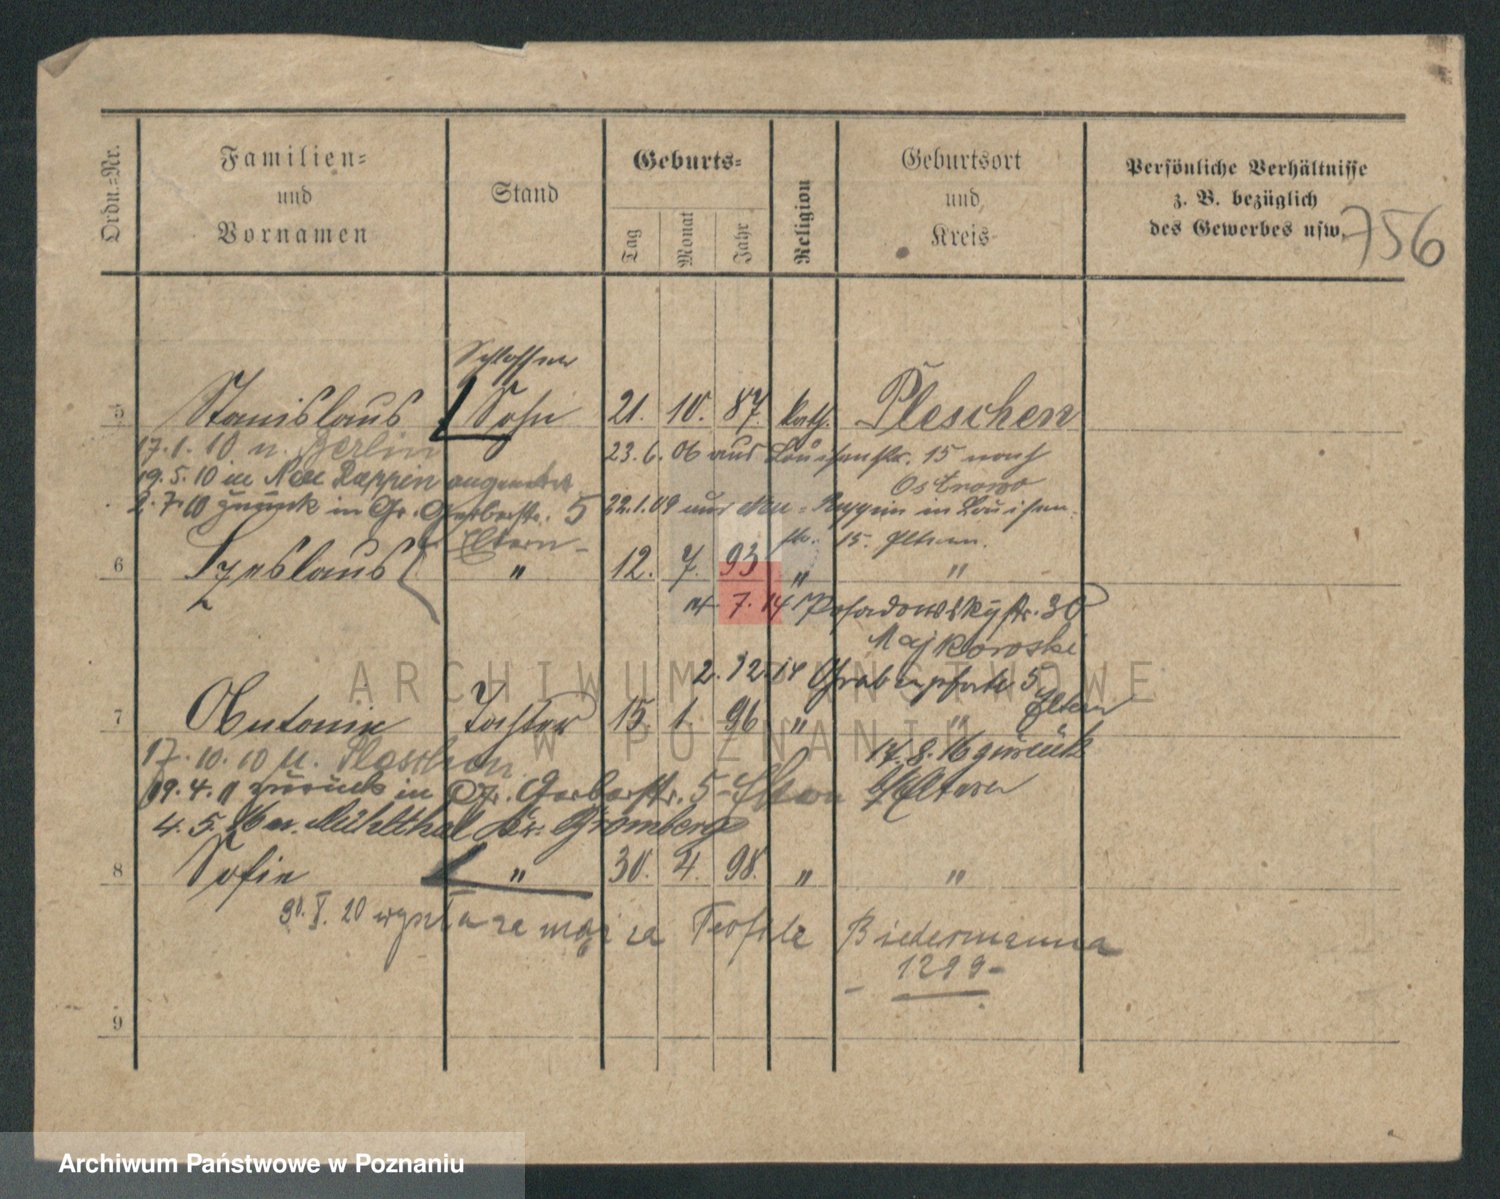 Ordn.=Nr.
Familien=
und
Vornamen
Stand
Geburts=
Tag
Monat
Jahr
Religion
Geburtsort
und
Kreis
Persönliche Verhältnisse
z. B. bezüglich
des Gewerbes usw.
756
Schlosser
5 Stanislaus Sohn 21. 10. 87. kath. Pleschen
17.1.10 n. Berlin
23.6.06 aus Louisenstr. 15 nach
Ostrowo
19.5.10 in Neu Ruppin
2.7.10 zurück in Gr. Gerberstr. 5
Eltern
22.1.09 aus Neu=Ruppin in Louisen
str. 15. Eltern.
6 Czeslaus " 12. 7. 93 " "
7. 14 Posadowskystr. 30
Majkowski
2.12.14 Grabenpforte 5
Eltern
7 Antonie Tochter 15. 1. 96 " "
17.10.10 n. Pleschen
17.8.16 zurück
z/Eltern
19.4.11 zurück in Gr. Gerberstr. 5 Eltern
4.5.16 n. Mühlthal Kr. Bromberg
8 Sofie " 30. 4. 98. " "
X. 20 wyszła za mąż za Teofila Biedermanna
1299
9
ARCHIWUM PAŃSTWOWE
W POZNANIU
Archiwum Państwowe w Poznaniu